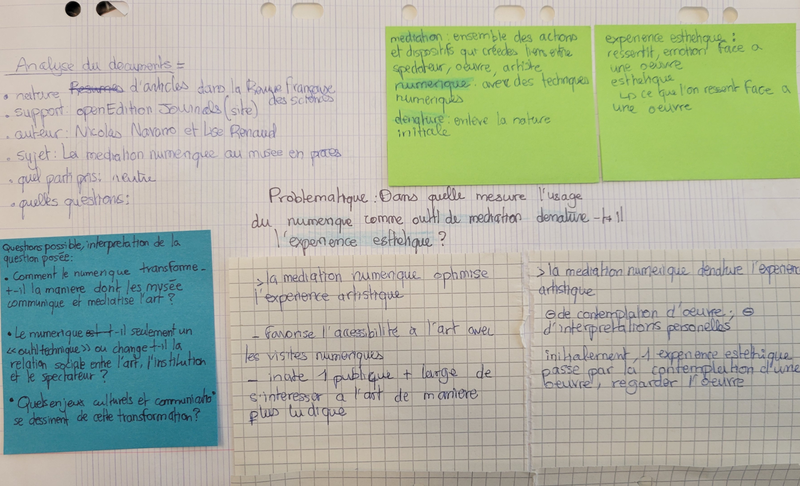 Analyse du documents =
• nature Resumés d'articles dans la Revue française
des sciences
• support: openEdition Journals (site)
• auteur: Nicolas Navarro et Lise Renaud
• sujet: La mediation numerique au musee en procès
• quel parti pris: neutre
• quelles questions:
mediation: ensemble des actions
et dispositifs qui crée des liens entre
spectateur, oeuvre, artiste
numerique: avec des techniques
numeriques
denature: enlève la nature
initiale
experience esthetique:
ressentit, emotion face a
une oeuvre
esthetique
↳ ce que l'on ressent face a
une oeuvre
Problematique: Dans quelle mesure l'usage
du numerique comme outil de mediation denature-t-il
l'experience esthetique?
Questions possible, interpretation de la
question posée:
• Comment le numerique transforme-
t-il la manière dont les musée
communique et mediatise l'art?
• Le numerique est t-il seulement un
«outil technique» ou change-t-il la
relation sociale entre l'art, l'institution
et le spectateur?
• Quels enjeux culturels et communicatio
se dessinent de cette transformation?
> la mediation numerique optimise
l'experience artistique
- favorise l'accessibilité à l'art avec
les visites numeriques
- incite 1 publique + large de
s'interesser a l'art de maniere
plus ludique
> la mediation numerique denature l'experience
artistique
⊖ de contemplation d'oeuvre, ⊖
d'interpretations personelles
initialement, 1 experience esthétique
passe par la contemplation d'une
oeuvre, regarder l'oeuvre